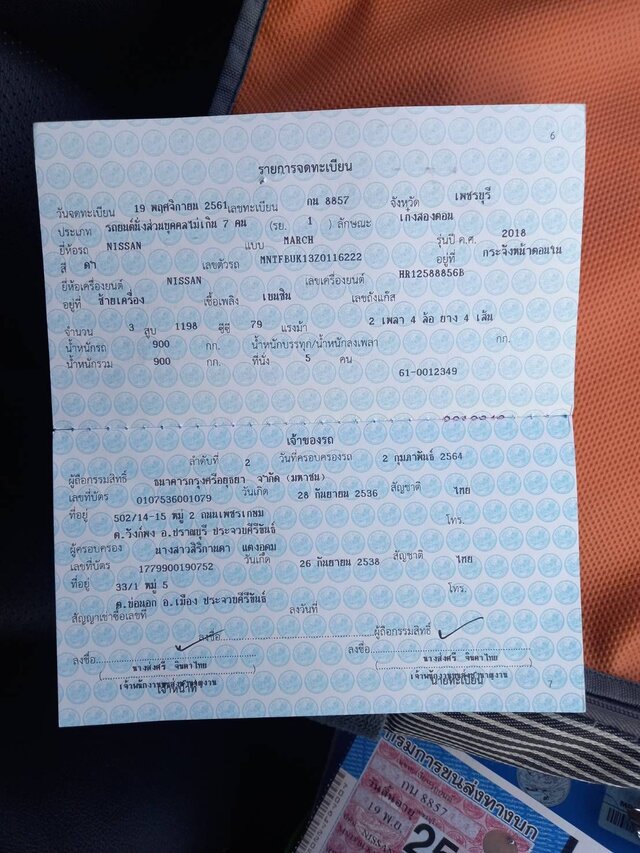 6
รายการจดทะเบียน
วันจดทะเบียน 19 พฤศจิกายน 2561 เลขทะเบียน กน 8857 จังหวัด เพชรบุรี
ประเภท รถยนต์นั่งส่วนบุคคลไม่เกิน 7 คน (รย. 1 ) ลักษณะ เก๋งสองตอน
ยี่ห้อรถ NISSAN แบบ MARCH รุ่นปี ค.ศ. 2018
สี ดำ เลขตัวรถ MNTFBUK13Z0116222 อยู่ที่ กระจังหน้าตอนใน
ยี่ห้อเครื่องยนต์ NISSAN เลขเครื่องยนต์ HR12588856B
อยู่ที่ ซ้ายเครื่อง เชื้อเพลิง เบนซิน เลขถังแก๊ส
จำนวน 3 สูบ 1198 ซีซี 79 แรงม้า 2 เพลา 4 ล้อ ยาง 4 เส้น
น้ำหนักรถ 900 กก. น้ำหนักบรรทุก/น้ำหนักลงเพลา กก.
น้ำหนักรวม 900 กก. ที่นั่ง 5 คน
61-0012349
เจ้าของรถ
ลำดับที่ 2 วันที่ครอบครองรถ 2 กุมภาพันธ์ 2564
ผู้ถือกรรมสิทธิ์ ธนาคารกรุงศรีอยุธยา จำกัด (มหาชน)
เลขที่บัตร 0107536001079 วันเกิด 28 กันยายน 2536 สัญชาติ ไทย
ที่อยู่ 502/14-15 หมู่ 2 ถนนเพชรเกษม โทร.
ต.วังก์พง อ.ปราณบุรี ประจวบคีรีขันธ์
ผู้ครอบครอง นางสาวสิริกานดา แตงอุดม
เลขที่บัตร 1779900190752 วันเกิด 26 กันยายน 2538 สัญชาติ ไทย
ที่อยู่ 33/1 หมู่ 5 โทร.
ต.บ่อนอก อ.เมือง ประจวบคีรีขันธ์
สัญญาเช่าซื้อเลขที่ ลงวันที่
ลงชื่อ ผู้ถือกรรมสิทธิ์
ลงชื่อ ลงชื่อ
นางส่งศรี จินดาไทย นางส่งศรี จินดาไทย
เจ้าหน้าที่ นายทะเบียน
7
กรมการขนส่งทางบก
กน 8857
วันสิ้นอายุ
19 พ.ย.
NISSAN
25